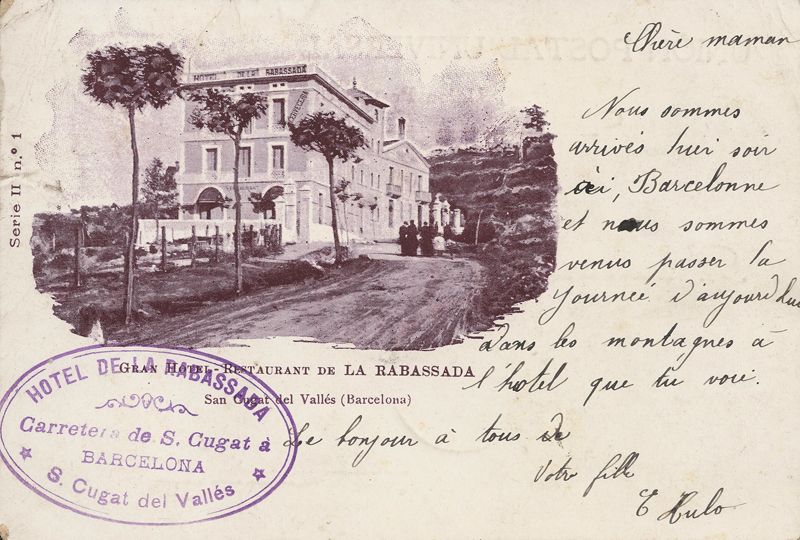 Serie II n.º 1
HOTEL DE LA RABASSADA
GRAN HOTEL-RESTAURANT DE LA RABASSADA
San Cugat del Vallés (Barcelona)
HOTEL DE LA RABASSADA
Carretera de S. Cugat á
BARCELONA
S. Cugat del Vallés
Chère maman
Nous sommes
arrivés hier soir
ici, Barcelonne
et nous sommes
venus passer la
journée d'aujourd'hui
dans les montagnes à
l'hotel que tu voie.
Le bonjour à tous de
Votre fille
E Hulo